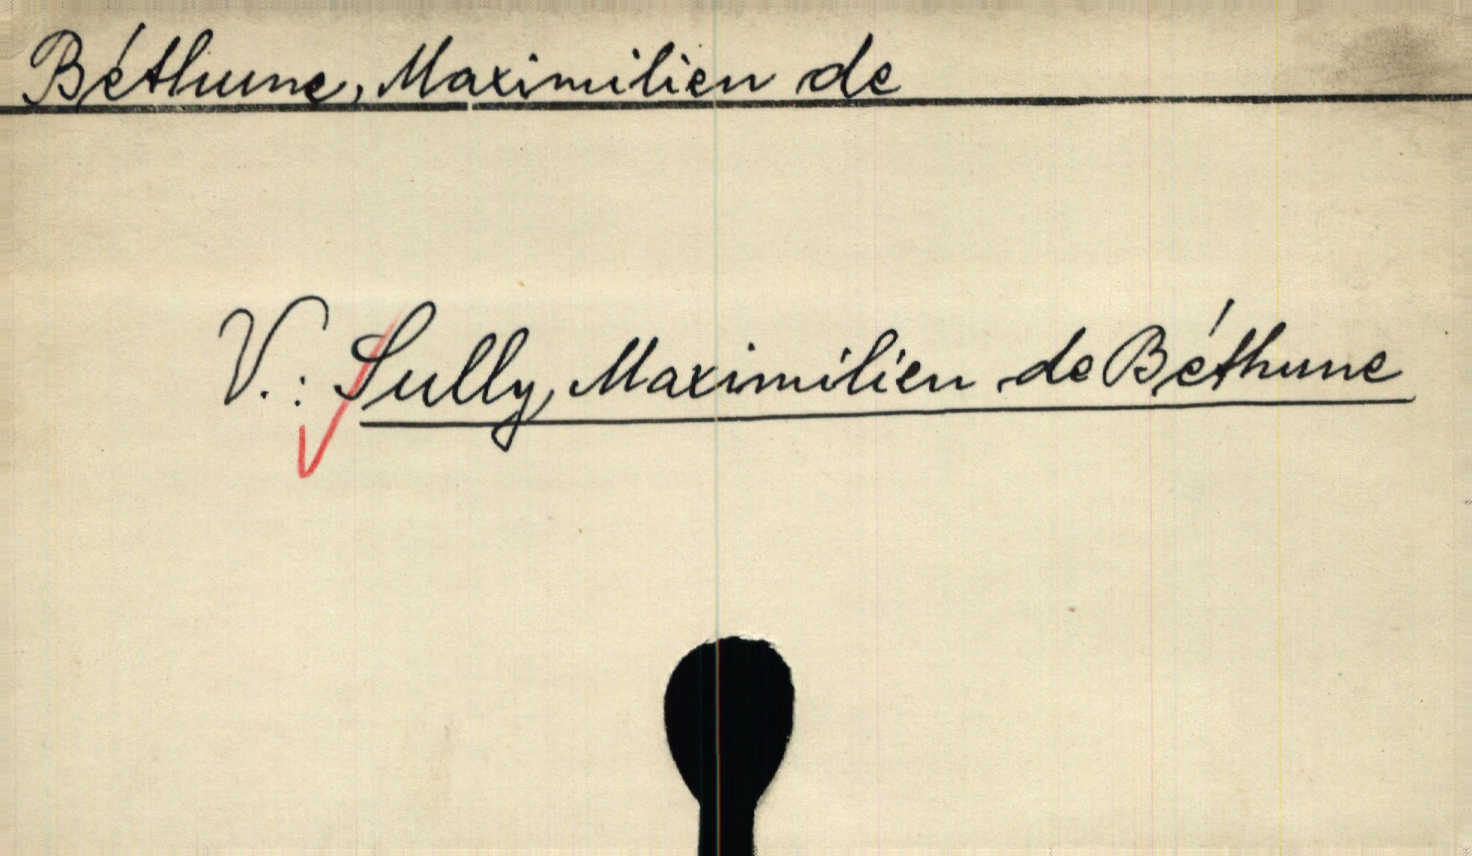 Béthune, Maximilien de
V.: Sully, Maximilien de Béthune